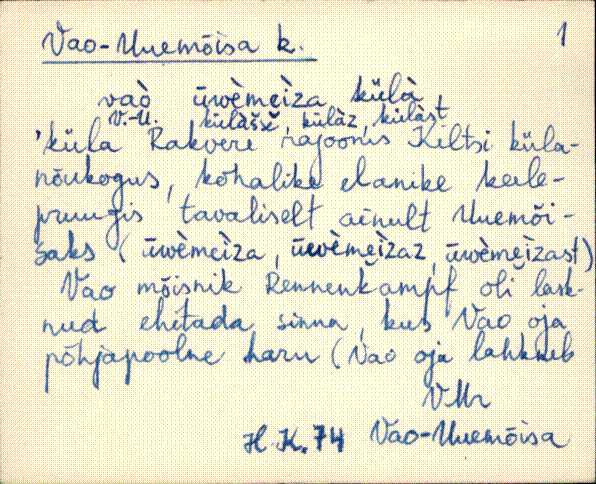 Vao-Uuemõisa k. 1
vaò ūwèmeìza külà,
V.-U. külàšše, külàz, külàst
'küla Rakvere rajoonis Kiltsi küla-
nõukogus, kohalike elanike keele-
pruugis tavaliselt ainult Uuemõi-
saks (ūwèmeìza, ūwèmeìzaz, ūwèmeìzast)
Vao mõisnik Rennenkampf oli lask-
nud ehitada sinna, kus Vao oja
põhjapoolne haru (Vao oja lahkneb
VMr
H. K. 74 Vao-Uuemõisa